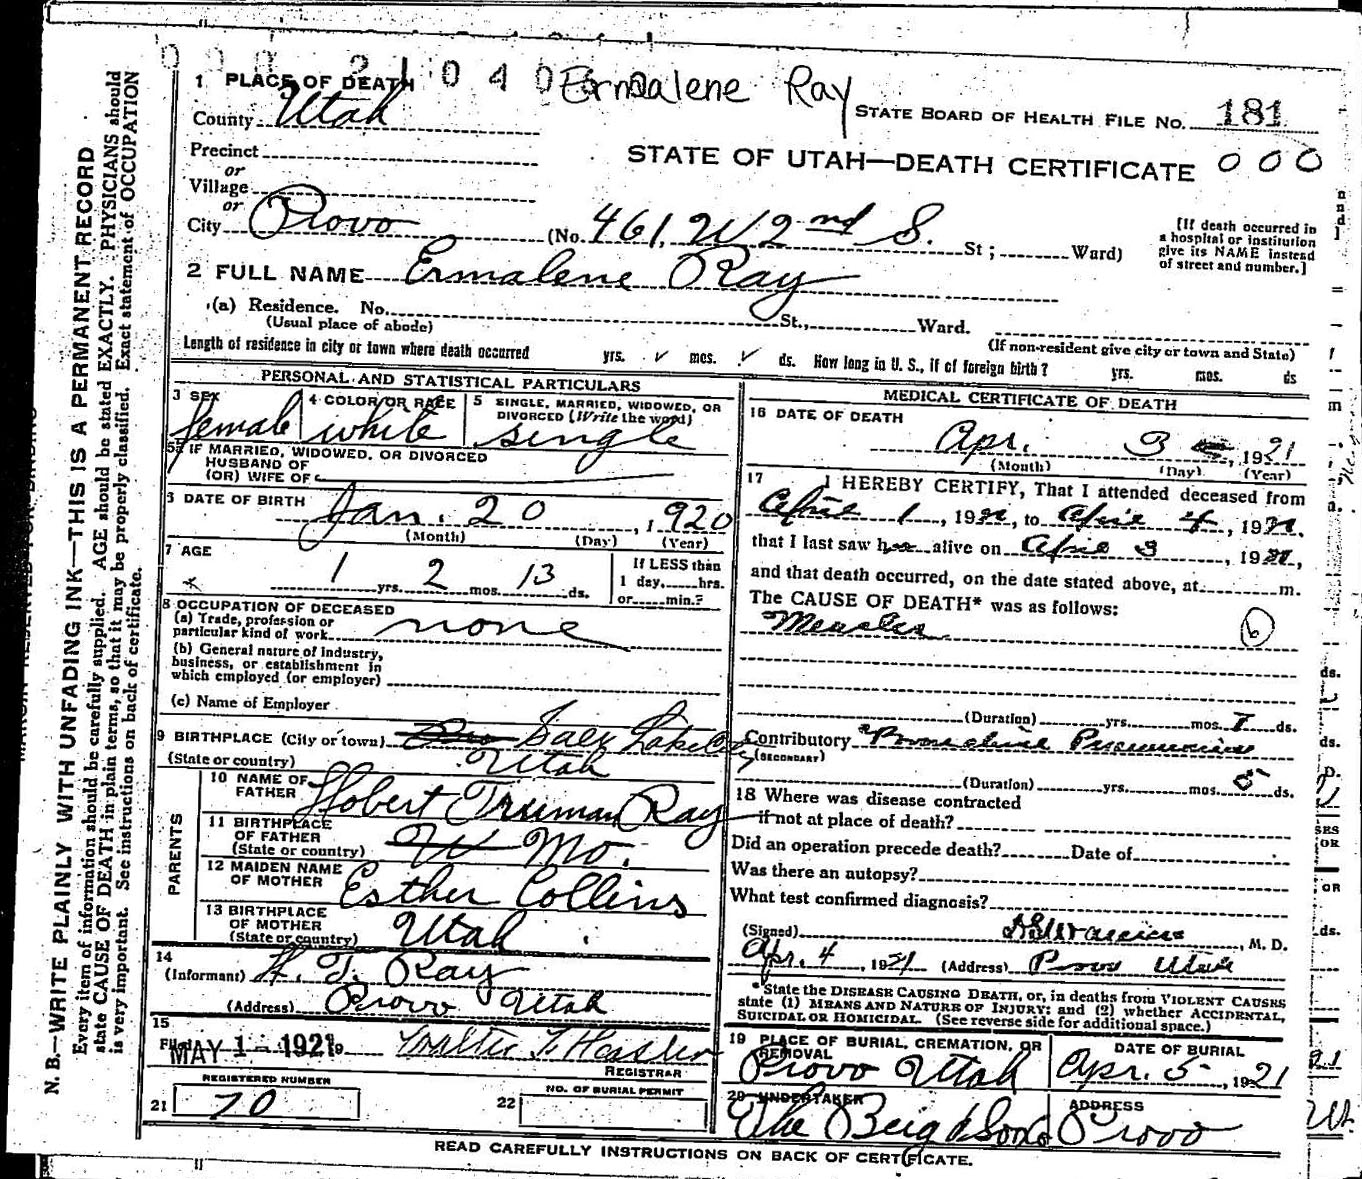 2 1 0 4 0
Ermalene Ray
1 PLACE OF DEATH
County Utah
STATE BOARD OF HEALTH FILE No. 181
Precinct
or
STATE OF UTAH—DEATH CERTIFICATE 000
Village
or
City Provo (No. 461, W 2nd S. St; Ward)
[If death occurred in
a hospital or institution
give its NAME instead
of street and number.]
2 FULL NAME Ermalene Ray
(a) Residence. No. St., Ward.
(Usual place of abode) (If non-resident give city or town and State)
Length of residence in city or town where death occurred yrs. mos. ds. How long in U. S., if of foreign birth? yrs. mos. ds
PERSONAL AND STATISTICAL PARTICULARS
3 SEX 4 COLOR OR RACE 5 SINGLE, MARRIED, WIDOWED, OR
DIVORCED (Write the word)
female white single
5a IF MARRIED, WIDOWED, OR DIVORCED
HUSBAND OF
(OR) WIFE OF
6 DATE OF BIRTH Jan. 20, 1920
(Month) (Day) (Year)
7 AGE If LESS than
1 yrs. 2 mos. 13 ds. 1 day, hrs.
or min.?
8 OCCUPATION OF DECEASED
(a) Trade, profession or
particular kind of work none
(b) General nature of industry,
business, or establishment in
which employed (or employer)
(c) Name of Employer
9 BIRTHPLACE (City or town) Salt Lake City
(State or country) Utah
PARENTS
10 NAME OF
FATHER Hobert Truman Ray
11 BIRTHPLACE
OF FATHER
(State or country) Mo.
12 MAIDEN NAME
OF MOTHER Esther Collins
13 BIRTHPLACE
OF MOTHER
(State or country) Utah
14
(Informant) H. T. Ray
(Address) Provo Utah
15
Filed MAY 1 - 1921 Walter T. Hasler
REGISTRAR
REGISTERED NUMBER NO. OF BURIAL PERMIT
21 70 22
MEDICAL CERTIFICATE OF DEATH
16 DATE OF DEATH
Apr. 3, 1921
(Month) (Day) (Year)
17 I HEREBY CERTIFY, That I attended deceased from
April 1, 1921, to April 4, 1921,
that I last saw her alive on April 3, 1921,
and that death occurred, on the date stated above, at m.
The CAUSE OF DEATH* was as follows:
Measles 6
(Duration) yrs. mos. 7 ds.
Contributory Bronchial Pneumonia
(SECONDARY)
(Duration) yrs. mos. 5 ds.
18 Where was disease contracted
if not at place of death?
Did an operation precede death? Date of
Was there an autopsy?
What test confirmed diagnosis?
(Signed) M. D.
Apr. 4, 1921 (Address) Provo Utah
*State the DISEASE CAUSING DEATH, or, in deaths from VIOLENT CAUSES
state (1) MEANS AND NATURE OF INJURY; and (2) whether ACCIDENTAL,
SUICIDAL OR HOMICIDAL. (See reverse side for additional space.)
19 PLACE OF BURIAL, CREMATION, OR
REMOVAL DATE OF BURIAL
Provo Utah Apr. 5, 1921
20 UNDERTAKER ADDRESS
The Berg & Sons Co Provo
READ CAREFULLY INSTRUCTIONS ON BACK OF CERTIFICATE.
N. B.—WRITE PLAINLY WITH UNFADING INK—THIS IS A PERMANENT RECORD
Every item of information should be carefully supplied. AGE should be stated EXACTLY. PHYSICIANS should
state CAUSE OF DEATH in plain terms, so that it may be properly classified. Exact statement of OCCUPATION
is very important. See instructions on back of certificate.